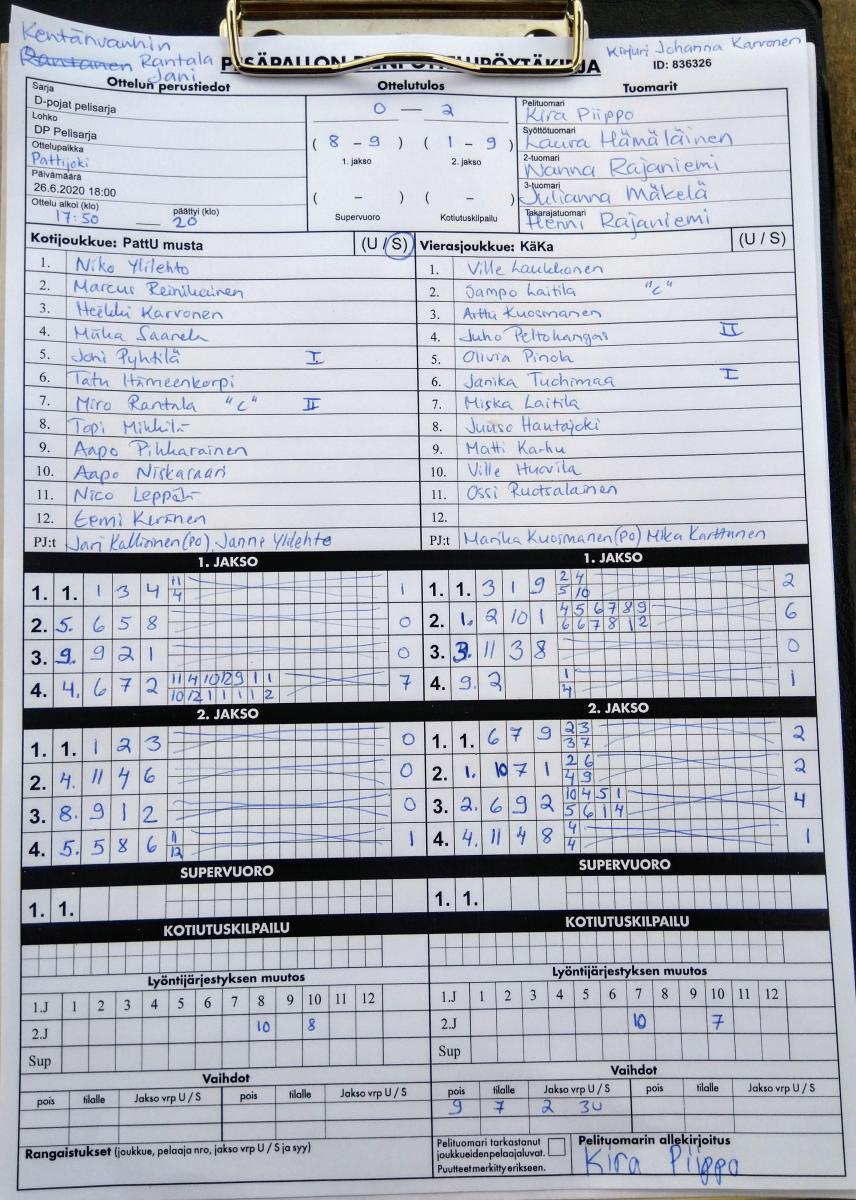 Kentänvanhin
Rantanen Rantala
Jani
Kirjuri Johanna Karvonen
PESÄPALLON PIENPOTTELUPÖYTÄKIRJA
ID: 836326
Ottelun perustiedot
Ottelutulos
Tuomarit
Sarja
D-pojat pelisarja
Lohko
DP Pelisarja
Ottelupaikka
Pattijoki
Päivämäärä
26.6.2020 18:00
Ottelu alkoi (klo) päättyi (klo)
17:50 — 20
0 — 2
( 8 - 9 ) ( 1 - 9 )
1. jakso 2. jakso
( - ) ( - )
Supervuoro Kotiutuskilpailu
Pelituomari
Kira Piippo
Syöttötuomari
Laura Hämäläinen
2-tuomari
Nanna Rajaniemi
3-tuomari
Julianna Mäkelä
Takarajatuomari
Henni Rajaniemi
Kotijoukkue: PattU musta (U / S)
1. Niko Ylilehto
2. Marcus Reinikainen
3. Heikki Karvonen
4. Miika Saarela
5. Joni Pyhtilä I
6. Tatu Hämeenkorpi
7. Miro Rantala "C" II
8. Topi
9. Aapo Pikkarainen
10. Aapo Niskasaari
11. Nico
12. Eemi Keränen
PJ:t Jari Kallinen (PO), Janne Ylilehto
Vierasjoukkue: KäKa (U / S)
1. Ville Laukkanen
2. Sampo Laitila "C"
3. Arttu Kuosmanen
4. Juho Peltokangas II
5. Olivia Pinola
6. Janika Tuohimaa I
7. Miska Laitila
8. Juuso Hautajoki
9. Matti Karhu
10. Ville Huovila
11. Ossi Ruotsalainen
12.
PJ:t Marika Kuosmanen (PO) Mika Karttunen
1. JAKSO
1. 1. 1 3 4 11 1
4
2. 5. 6 5 8 0
3. 9. 9 2 1 0
4. 4. 6 7 2 11 4 10 12 9 1 1 7
10 12 1 1 1 1 2
1. JAKSO
1. 1. 3 1 9 2 4 2
5 10
2. 1. 2 10 1 4 5 6 7 8 9 6
6 6 7 8 1 2
3. 3. 11 3 8 0
4. 9. 2 1 1
4
2. JAKSO
1. 1. 1 2 3 0
2. 4. 11 4 6 0
3. 8. 9 1 2 0
4. 5. 5 8 6 11 1
12
2. JAKSO
1. 1. 6 7 9 2 3 2
3 7
2. 1. 10 7 1 2 6 2
4 9
3. 2. 6 9 2 10 4 5 1 4
5 6 1 4
4. 4. 11 4 8 4 1
4
SUPERVUORO
1. 1.
SUPERVUORO
1. 1.
KOTIUTUSKILPAILU
KOTIUTUSKILPAILU
Lyöntijärjestyksen muutos
1.J 1 2 3 4 5 6 7 8 9 10 11 12
2.J 10 8
Sup
Lyöntijärjestyksen muutos
1.J 1 2 3 4 5 6 7 8 9 10 11 12
2.J 10 7
Sup
Vaihdot
pois tilalle Jakso vrp U / S pois tilalle Jakso vrp U / S
Vaihdot
pois tilalle Jakso vrp U / S pois tilalle Jakso vrp U / S
9 7 2 3U
Rangaistukset (joukkue, pelaaja nro, jakso vrp U / S ja syy)
Pelituomari tarkastanut
joukkueiden pelaajaluvat.
Puutteet merkitty erikseen.
Pelituomarin allekirjoitus
Kira Piippo